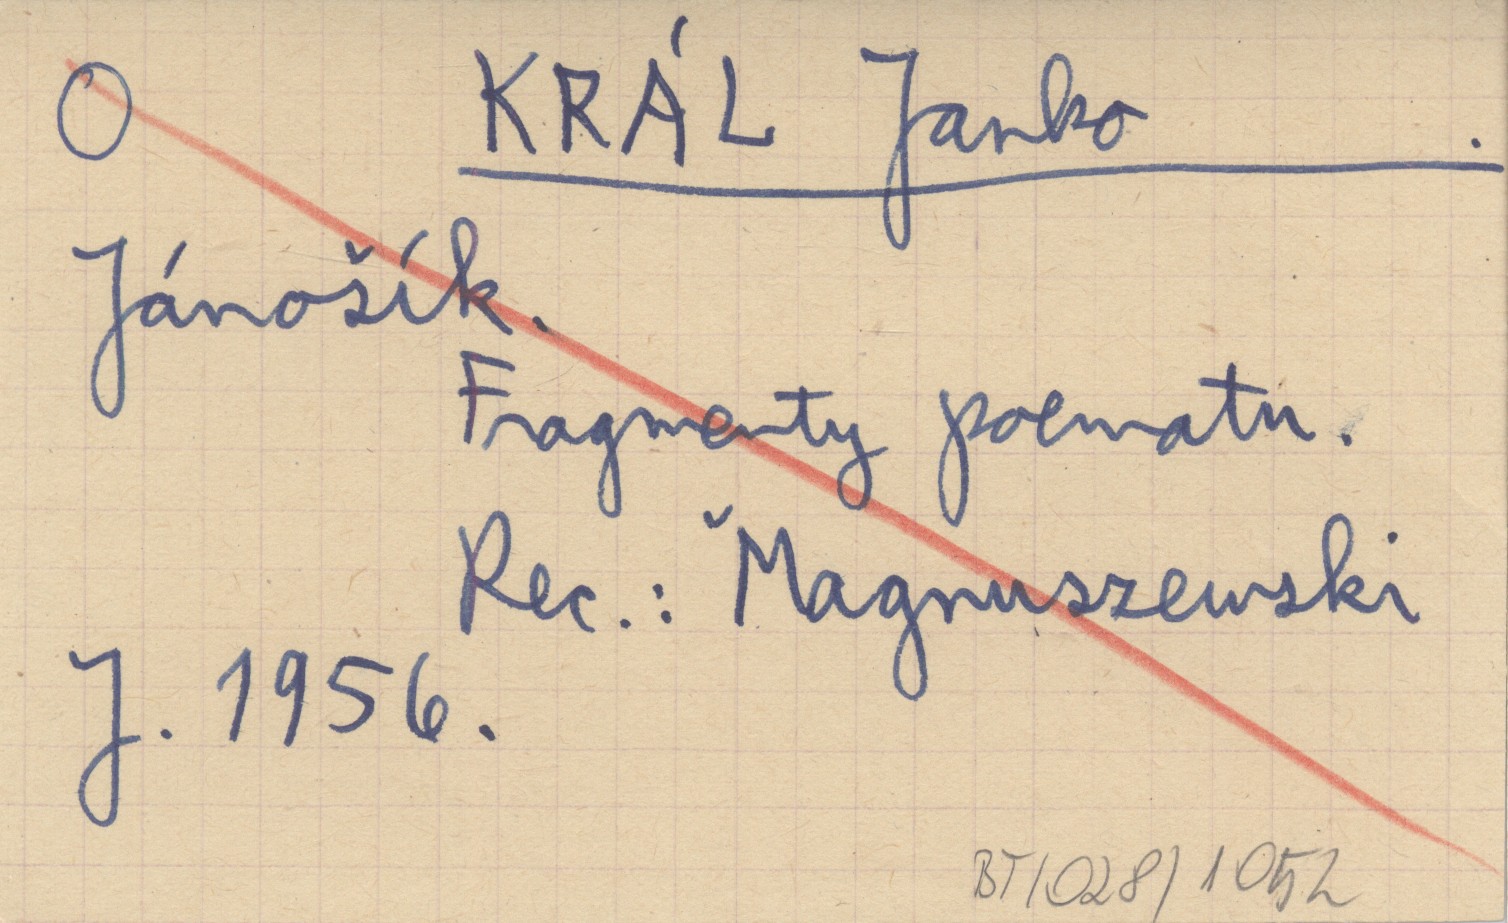 O KRÁL Janko .
Jánošík.
Fragmenty poematu.
Rec.: Magnuszewski
J. 1956.
BT/028/1052